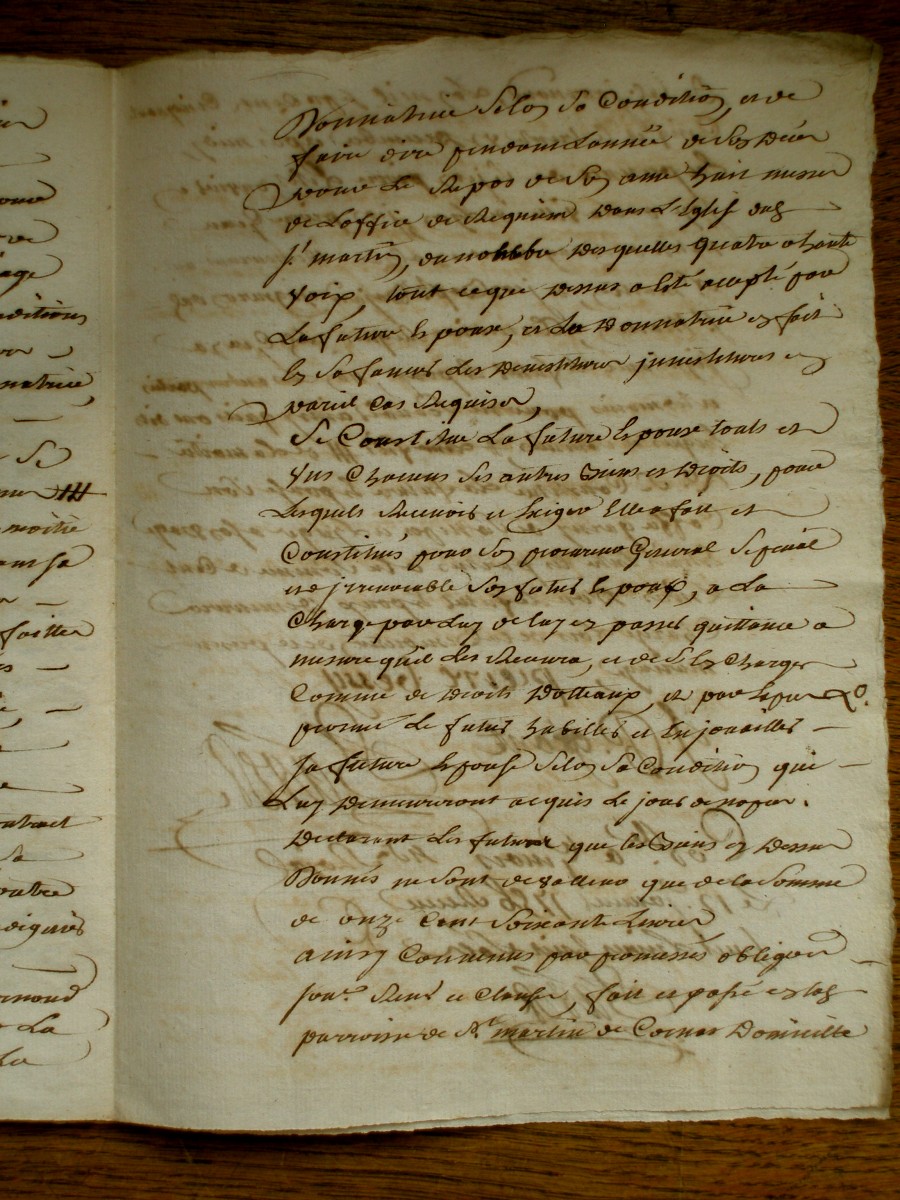 Donnatrice selon sa Condition, et de
faire dire pendant Lannée de son deces
pour Le Repos de son ame huit messes
de Loffice de Requiem dans L'Eglise dud
St martin, du nombre desquelles quatre a haute
voix, tout ce que dessus a été accepté par
La future Epouse, et La Donnatrice en fait
En sa faveur Les devestitures jnvestitures en
pareil cas Requises,
Se Constitue La future Epouse touts et
uns Chacuns ses autres Biens et Droits, pour
Lesquels Recevoir et Exiger Elle a fait et
Constitués pour son procureur General Special
et jrrevocable son futur Epoux, a La
Charge par Luy de Luy en passer quittance a
mesure quil Les Recevra, et de S'En Charger
Comme de Droits Dotteaux, et par Expres
promet Le futur habilles et Enjouailler
sa future Epouse selon sa Condition qui
Luy Demeureront acquis Le jour de nopces.
Declarant Les futurs que les Biens cy Dessus
Donnés ne sont de valleur que de la somme
de onze Cent soixante Livres
ainsy Convenus par promesses obligeon
Renon et Clauses, fait et passé en lad
parroisse de St. martin de Cornas Domicille
naditions
natrice,
Se
moitie
contract
La